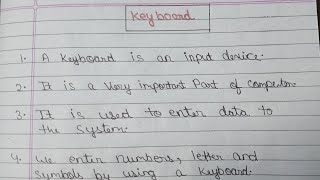 Keyboard
1. A Keyboard is an input device.
2. It is a very important Part of computer.
3. It is used to enter data to
the system.
4. We enter numbers, letter and
symbols by using a Keyboard.